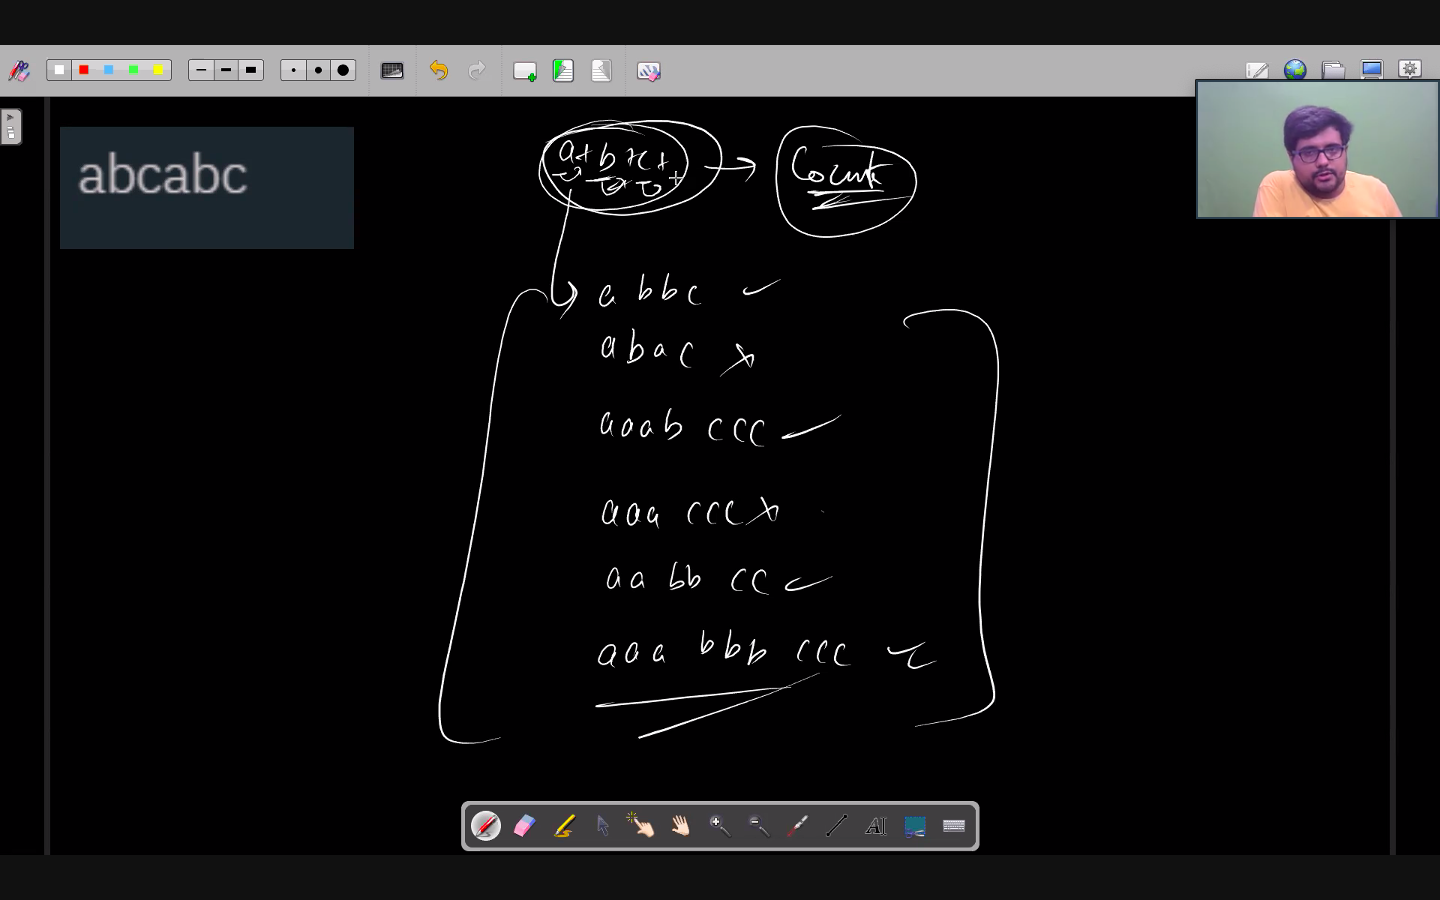 abcabc
a+b+c+
Count
abbc
abac
aaab ccc
aaa ccc
aa bb cc
aaa bbb ccc
AI